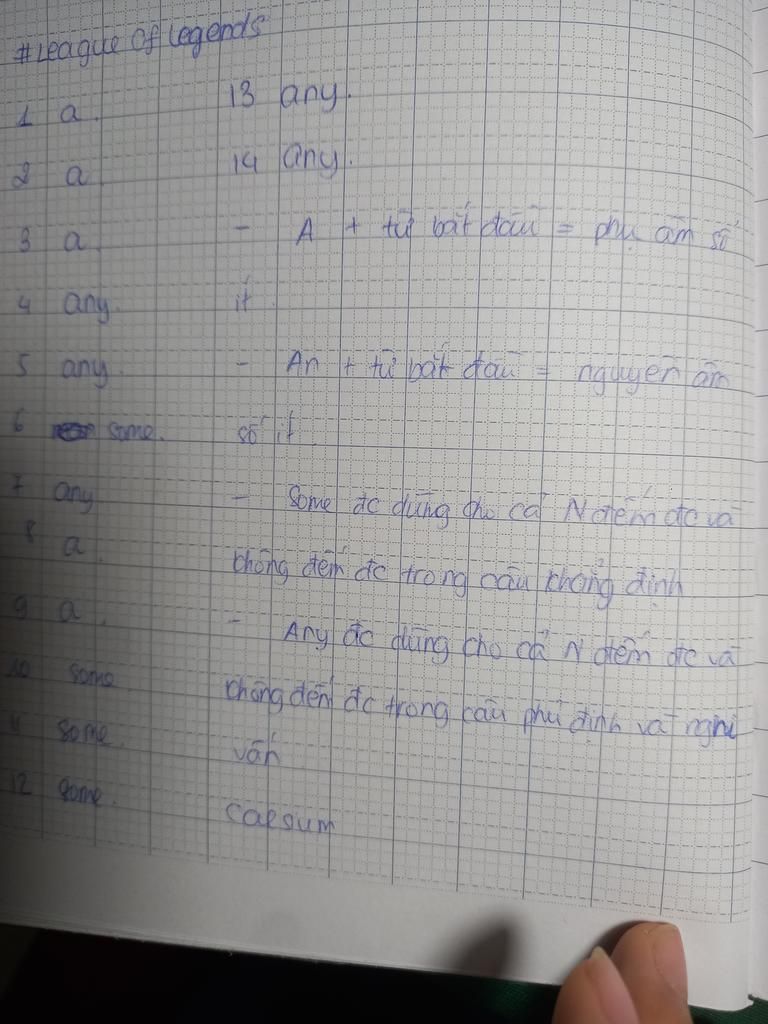 #League of legends
1 a.
2 a
3 a.
4 any.
5 any.
6 some.
7 any
8 a.
9 a.
10 some
11 some.
12 some.
13 any.
14 any.
- A + từ bắt đầu = phụ âm số
ít.
- An + từ bắt đầu = nguyên âm
số ít
- Some đc dùng cho cả N đếm đc và
không đếm đc trong câu khẳng định
- Any đc dùng cho cả N đếm đc và
không đếm đc trong câu phủ định và nghi
vấn